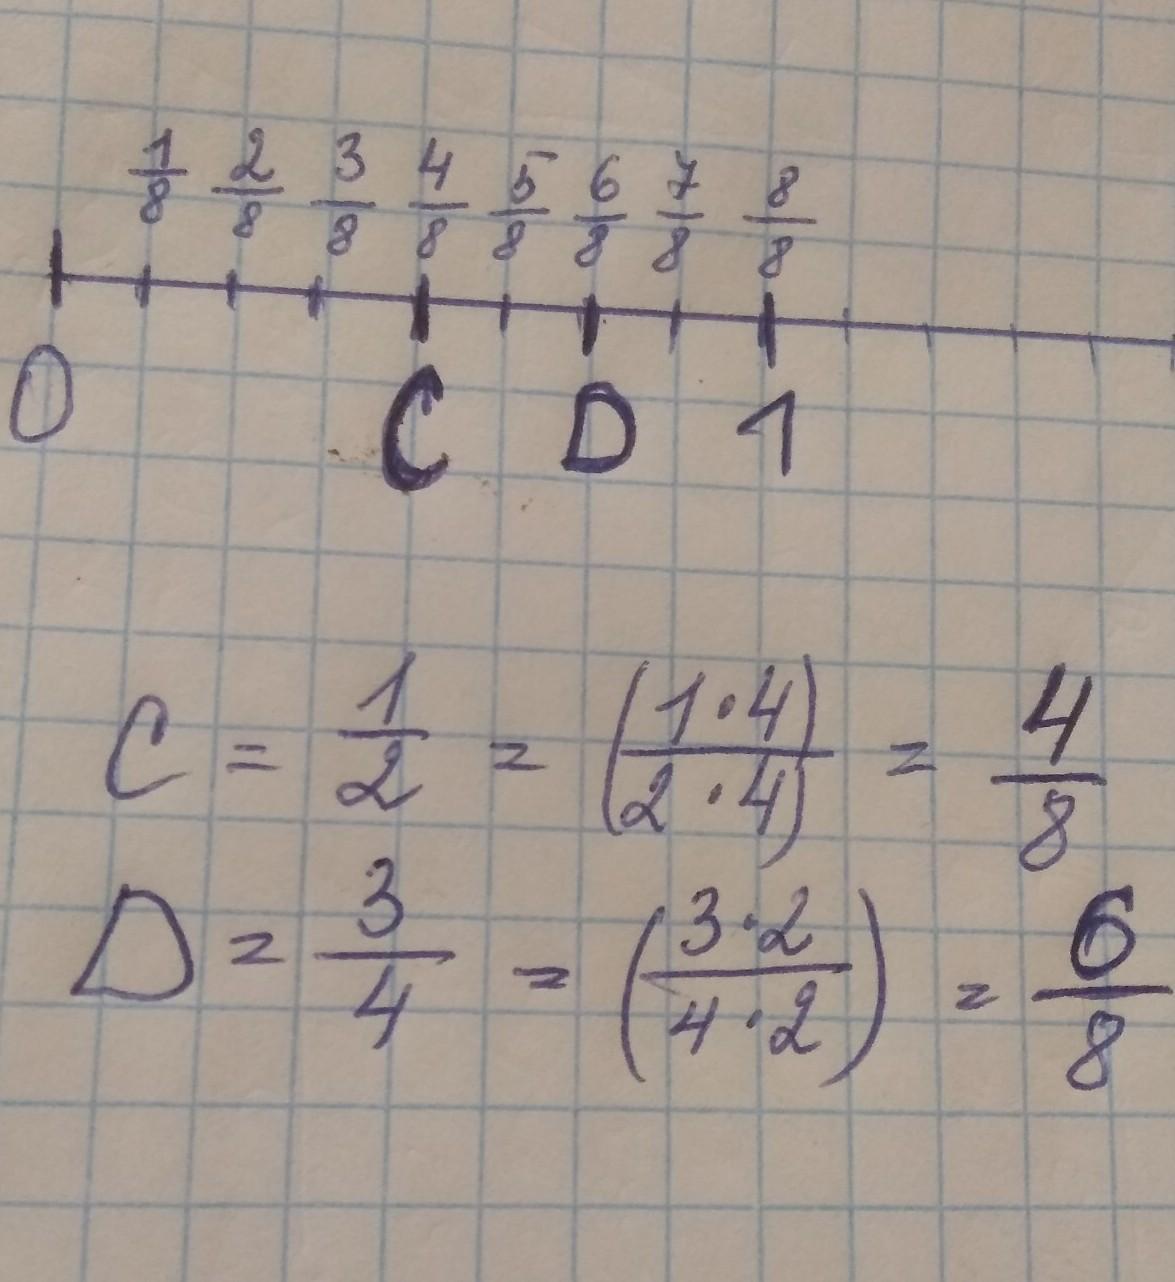 1/8 2/8 3/8 4/8 5/8 6/8 7/8 8/8
0 C D 1
C = 1/2 = (1·4)/(2·4) = 4/8
D = 3/4 = (3·2/4·2) = 6/8